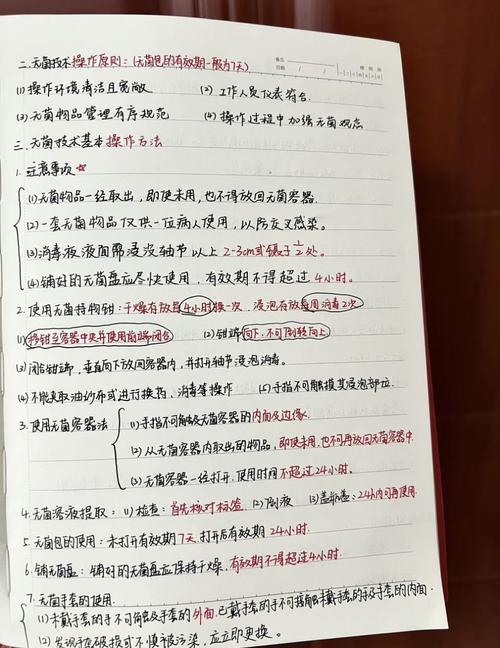 二.无菌技术操作原则:(无菌包的有效期一般为7天)
备忘
日期 / /
(1)操作环境清洁且宽敞 (2)工作人员仪表符合.
(3)无菌物品管理有序规范 (4)操作过程中加强无菌观念
三.无菌技术基本操作方法
1.注意事项☆
(1)无菌物品一经取出,即使未用,也不得放回无菌容器.
(2)一套无菌物品仅供一位病人使用,以防交叉感染。
(3)消毒液液面需浸没轴节以上2-3cm或镊子1/2处。
(4)铺好的无菌盘应尽快使用,有效期不得超过4小时。
2.使用无菌持物钳:干燥存放每4小时换一次,浸泡存放每周消毒2次
(1)将钳至容器中央并使用前端闭合 (2)钳端向下,不可倒转向上
(3)闭合钳端,垂直向下放回容器内,并打开轴节浸泡消毒。
(4)不能夹取油纱布或进行换药、消毒等操作 (5)手指不可触摸其浸泡部位.
3.使用无菌容器法 (1)手指不可触及无菌容器的内面及边缘.
(2)从无菌容器内取出的物品,即使未用,也不可再放回无菌容器中
(3)无菌容器一经打开,使用时间不超过24小时。
4.无菌溶液提取:(1)检查:首先核对标签 (2)倒液 (3)盖瓶盖:24h内可再使用.
5.无菌包的使用:未打开有效期7天,打开后有效期24小时.
6.铺无菌盘:铺好的无菌盘应保持干燥,有效期不得超过4小时.
7.无菌手套的使用.
(1)未戴手套的手不可触及手套的外面,已戴手套的手不可接触未戴手套的手及手套的内面.
(2)发现手套破损或不慎被污染,应立即更换。